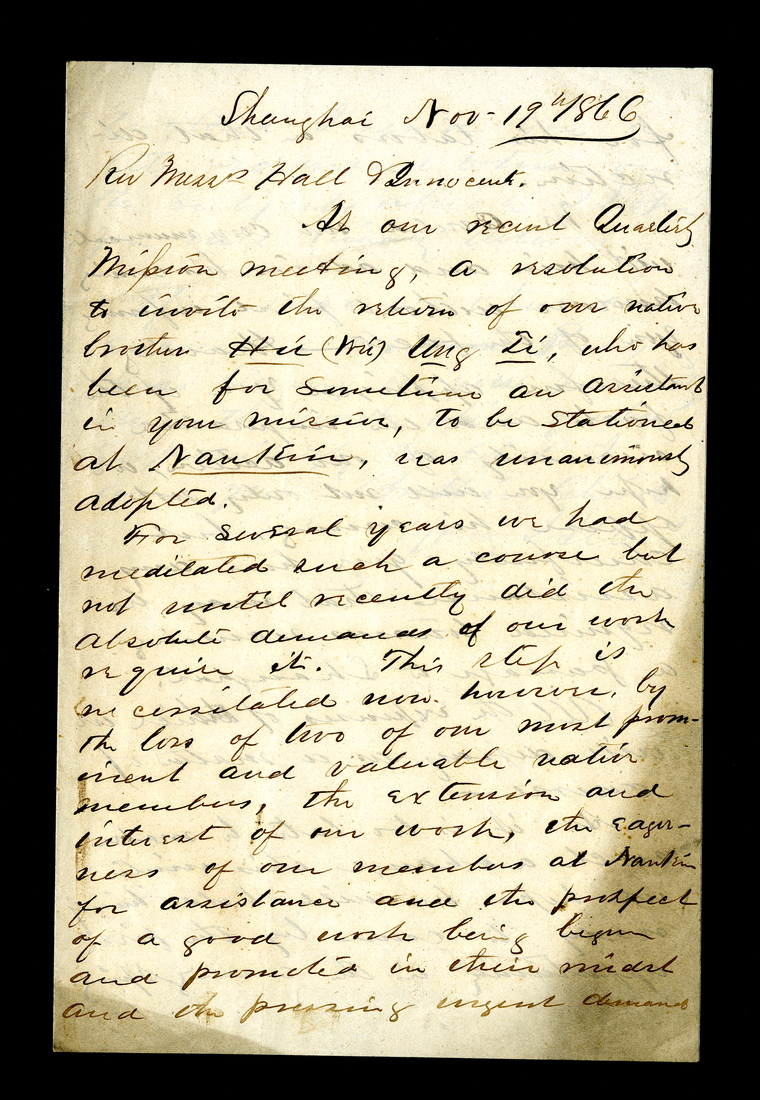 Shanghai Nov- 19th/866
Rev Messrs Hall & Innocent.
At our recent Quarterly
Mission meeting, a resolution
to invite the return of our native
brother Hu (Wu) Ung Ti, who has
been for sometime an assistant
in your mission, to be stationed
at Nankin, was unanimously
adopted.
For several years we had
meditated such a course but
not until recently did the
absolute demands of our work
require it. This step is
necessitated now however, by
the loss of two of our most prom-
inent and valuable native
members, the extension and
interest of our work, the eager-
ness of our members at Nankin
for assistance and the prospect
of a good work being begun
and promoted in their midst
and the pressing urgent demands